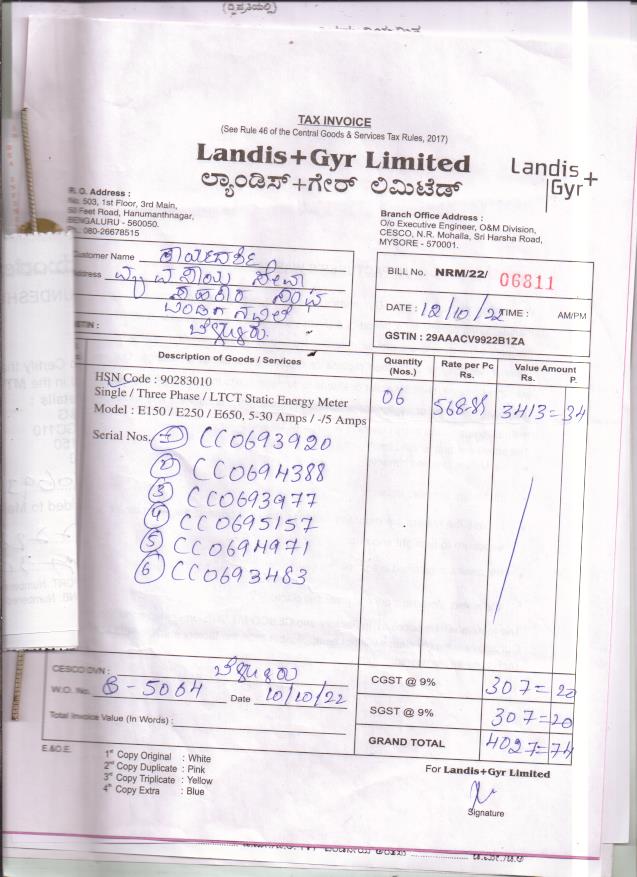 TAX INVOICE
(See Rule 46 of the Central Goods & Services Tax Rules, 2017)
Landis+Gyr Limited
ಲ್ಯಾಂಡಿಸ್+ಗೇರ್ ಲಿಮಿಟೆಡ್
Landis+
Gyr
R. O. Address :
No. 503, 1st Floor, 3rd Main,
50 Feet Road, Hanumanthnagar,
BENGALURU - 560050.
Ph.: 080-26678515
Branch Office Address :
O/o Executive Engineer, O&M Division,
CESCO, N.R. Mohalla, Sri Harsha Road,
MYSORE - 570001.
Customer Name
Address
GSTIN :
BILL No. NRM/22/ 06811
DATE : 12/10/22 TIME : AM/PM
GSTIN : 29AAACV9922B1ZA
Description of Goods / Services
Quantity (Nos.)
Rate per Pc Rs.
Value Amount Rs. P.
HSN Code : 90283010
Single / Three Phase / LTCT Static Energy Meter
Model : E150 / E250 / E650, 5-30 Amps / -/5 Amps
06 568-89 3413=34
Serial Nos. 1 CC0693920
2 CC0694388
3 CC0693977
4 CC0695157
5 CC0694971
6 CC0693483
CESCO DVN :
W.O. No. B-5064 Date 10/10/22
Total Invoice Value (In Words) :
CGST @ 9% 307=20
SGST @ 9% 307=20
GRAND TOTAL 4027=74
E.&O.E.
1st Copy Original : White
2nd Copy Duplicate : Pink
3rd Copy Triplicate : Yellow
4th Copy Extra : Blue
For Landis+Gyr Limited
Signature